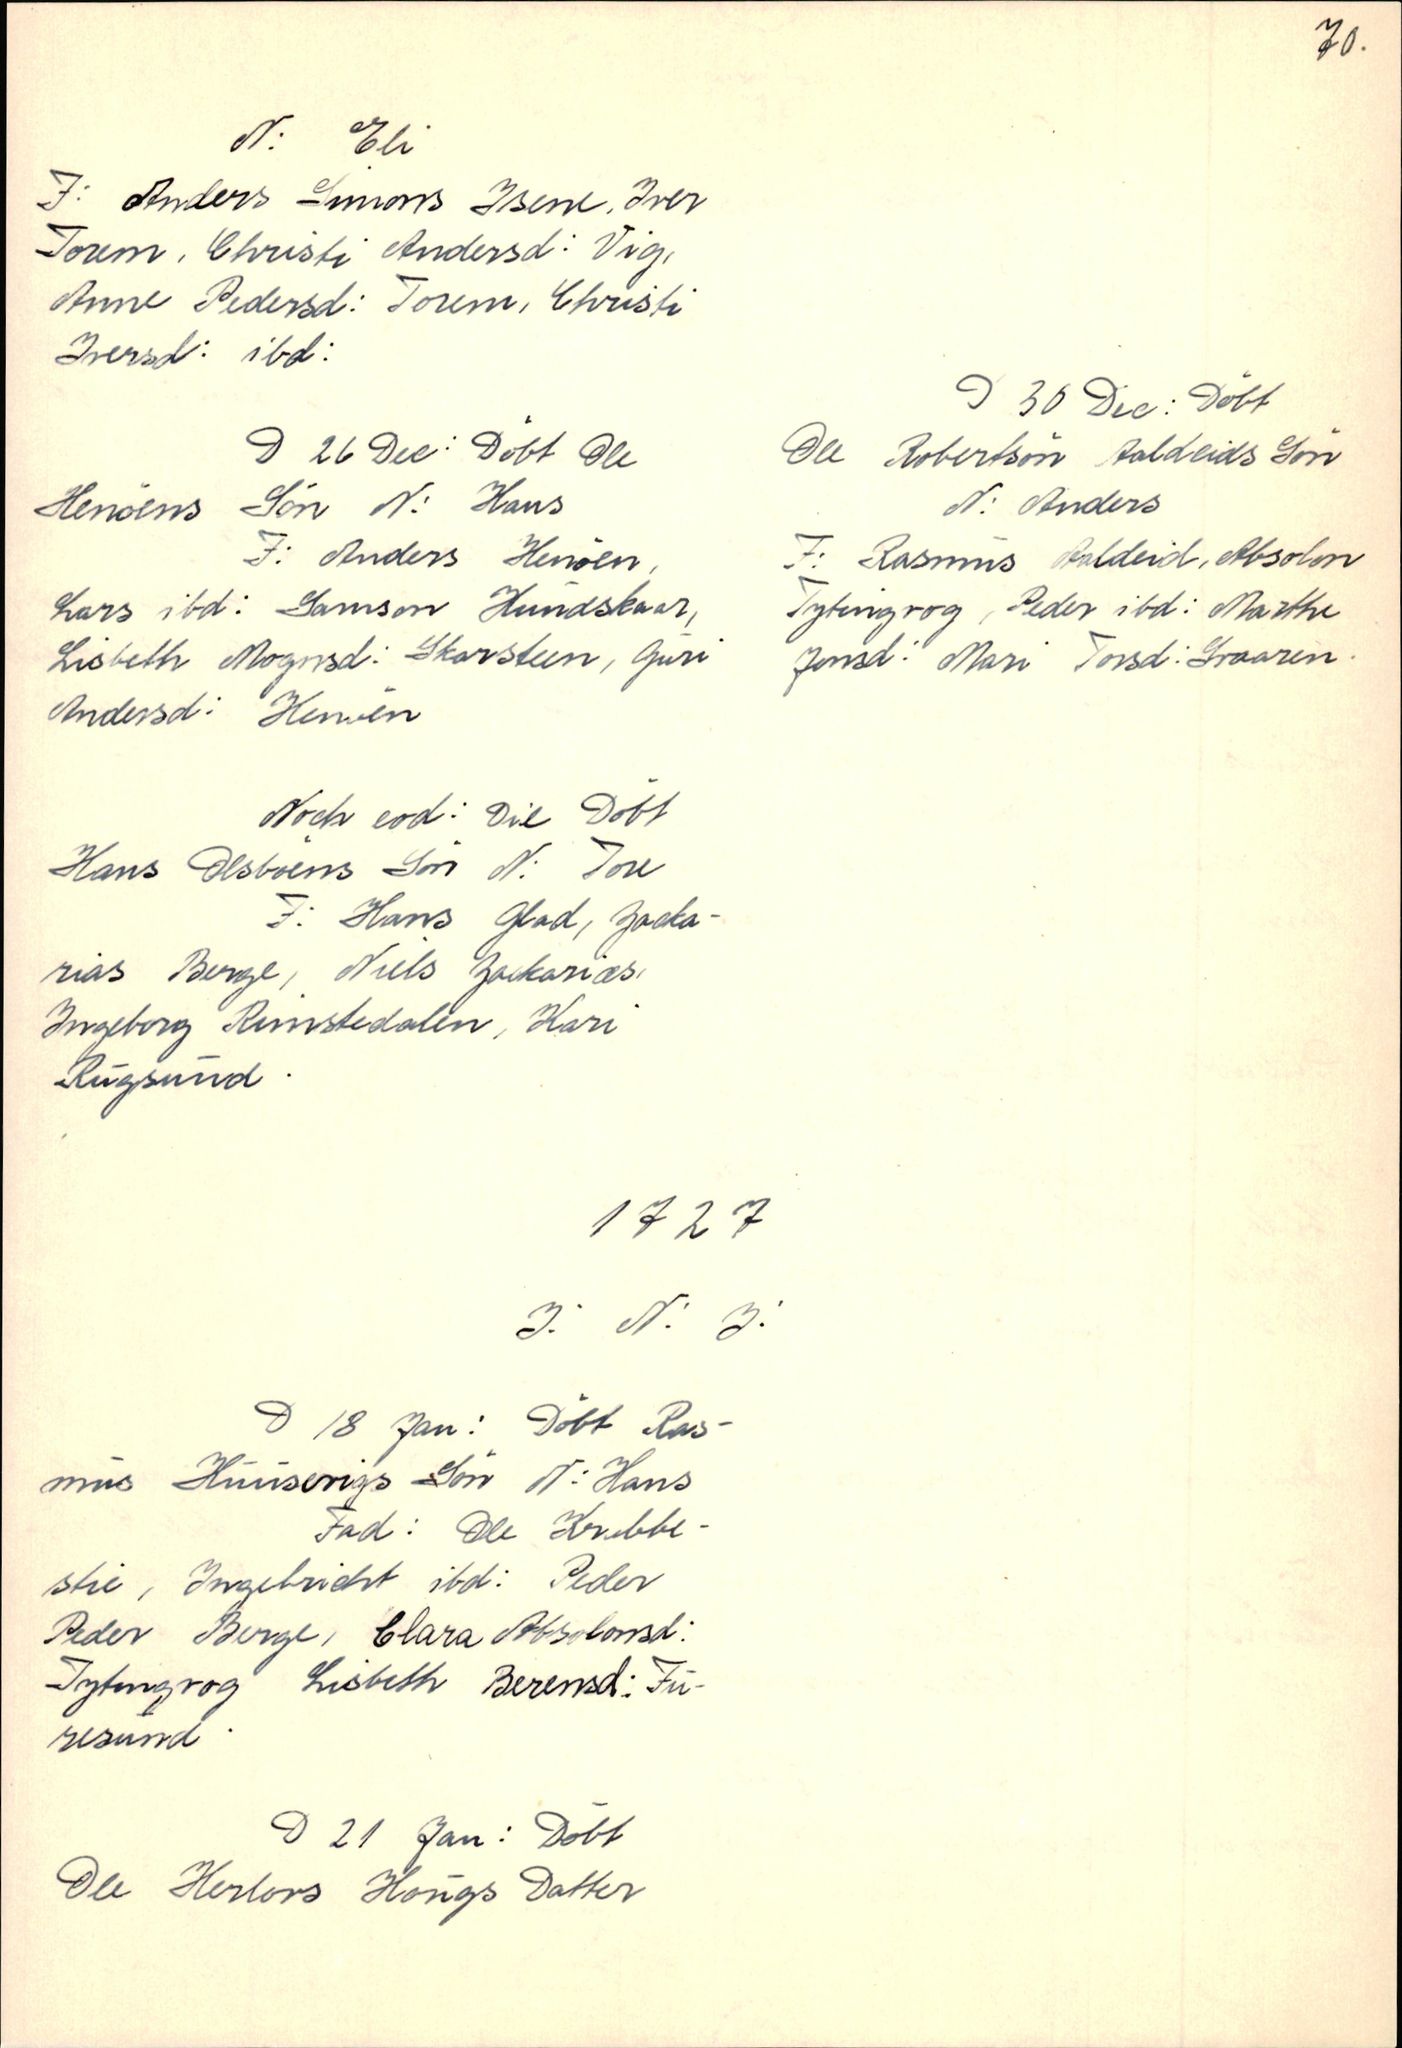 70.
N: Eli
F: Anders Simons Isene, Iver
Torem, Christi Andersd: Vig,
Anne Pedersd: Torem, Christi
Iversd: ibd:
D 26 Dec: Döbt Ole
Henöens Sön N: Hans
F: Anders Henöen,
Lars ibd: Samson Hundskaar,
Lisbeth Mognsd: Skarsteen, Guri
Andersd: Henöen
Noch eod: Die Döbt
Hans Olsböens Sön N: Tore
F: Hans Glad, Zacka-
rias Berge, Niels Zackarias,
Ingeborg Rimstedalen, Kari
Rugsund.
D 30 Dec: Döbt
Ole Robertsön Aaldeids Sön
N: Anders
F: Rasmus Aaldeid, Absolon
Tytingvog, Peder ibd: Marthe
Jonsd: Mari Torsd: Graaren.
1727
J: N: J:
D 18 Jan: Döbt Ras-
mus Huusevigs Sön N: Hans
Fad: Ole Krabbe-
stie, Ingebricht ibd: Peder
Peder Berge, Clara Absolonsd:
Tytingvog Lisbeth Berensd: Fu-
resund.
D 21 Jan: Döbt
Ole Herlovs Hougs Datter